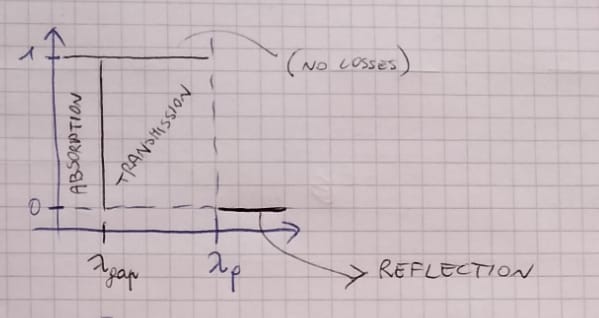 1
(NO LOSSES)
ABSORPTION
TRANSMISSION
0
λgap
λp
REFLECTION